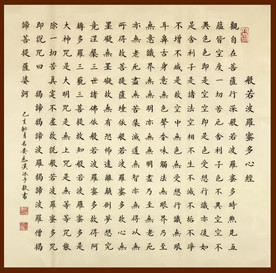 般若波羅蜜多心經
觀自在菩薩行深般若波羅蜜多時照見五
蘊皆空度一切苦厄舍利子色不異空空不
異色色即是空空即是色受想行識亦復如
是舍利子是諸法空相不生不滅不垢不淨
不增不減是故空中無色無受想行識無眼
耳鼻舌身意無色聲香味觸法無眼界乃至
無意識界無無明亦無無明盡乃至無老死
亦無老死盡無苦集滅道無智亦無得以無
所得故菩提薩埵依般若波羅蜜多故心無
罣礙無罣礙故無有恐怖遠離顛倒夢想究
竟涅槃三世諸佛依般若波羅蜜多故得阿
耨多羅三藐三菩提故知般若波羅蜜多是
大神咒是大明咒是無上咒是無等等咒能
除一切苦真實不虛故說般若波羅蜜多咒
即說咒曰揭諦揭諦波羅揭諦波羅僧揭
諦菩提薩婆訶